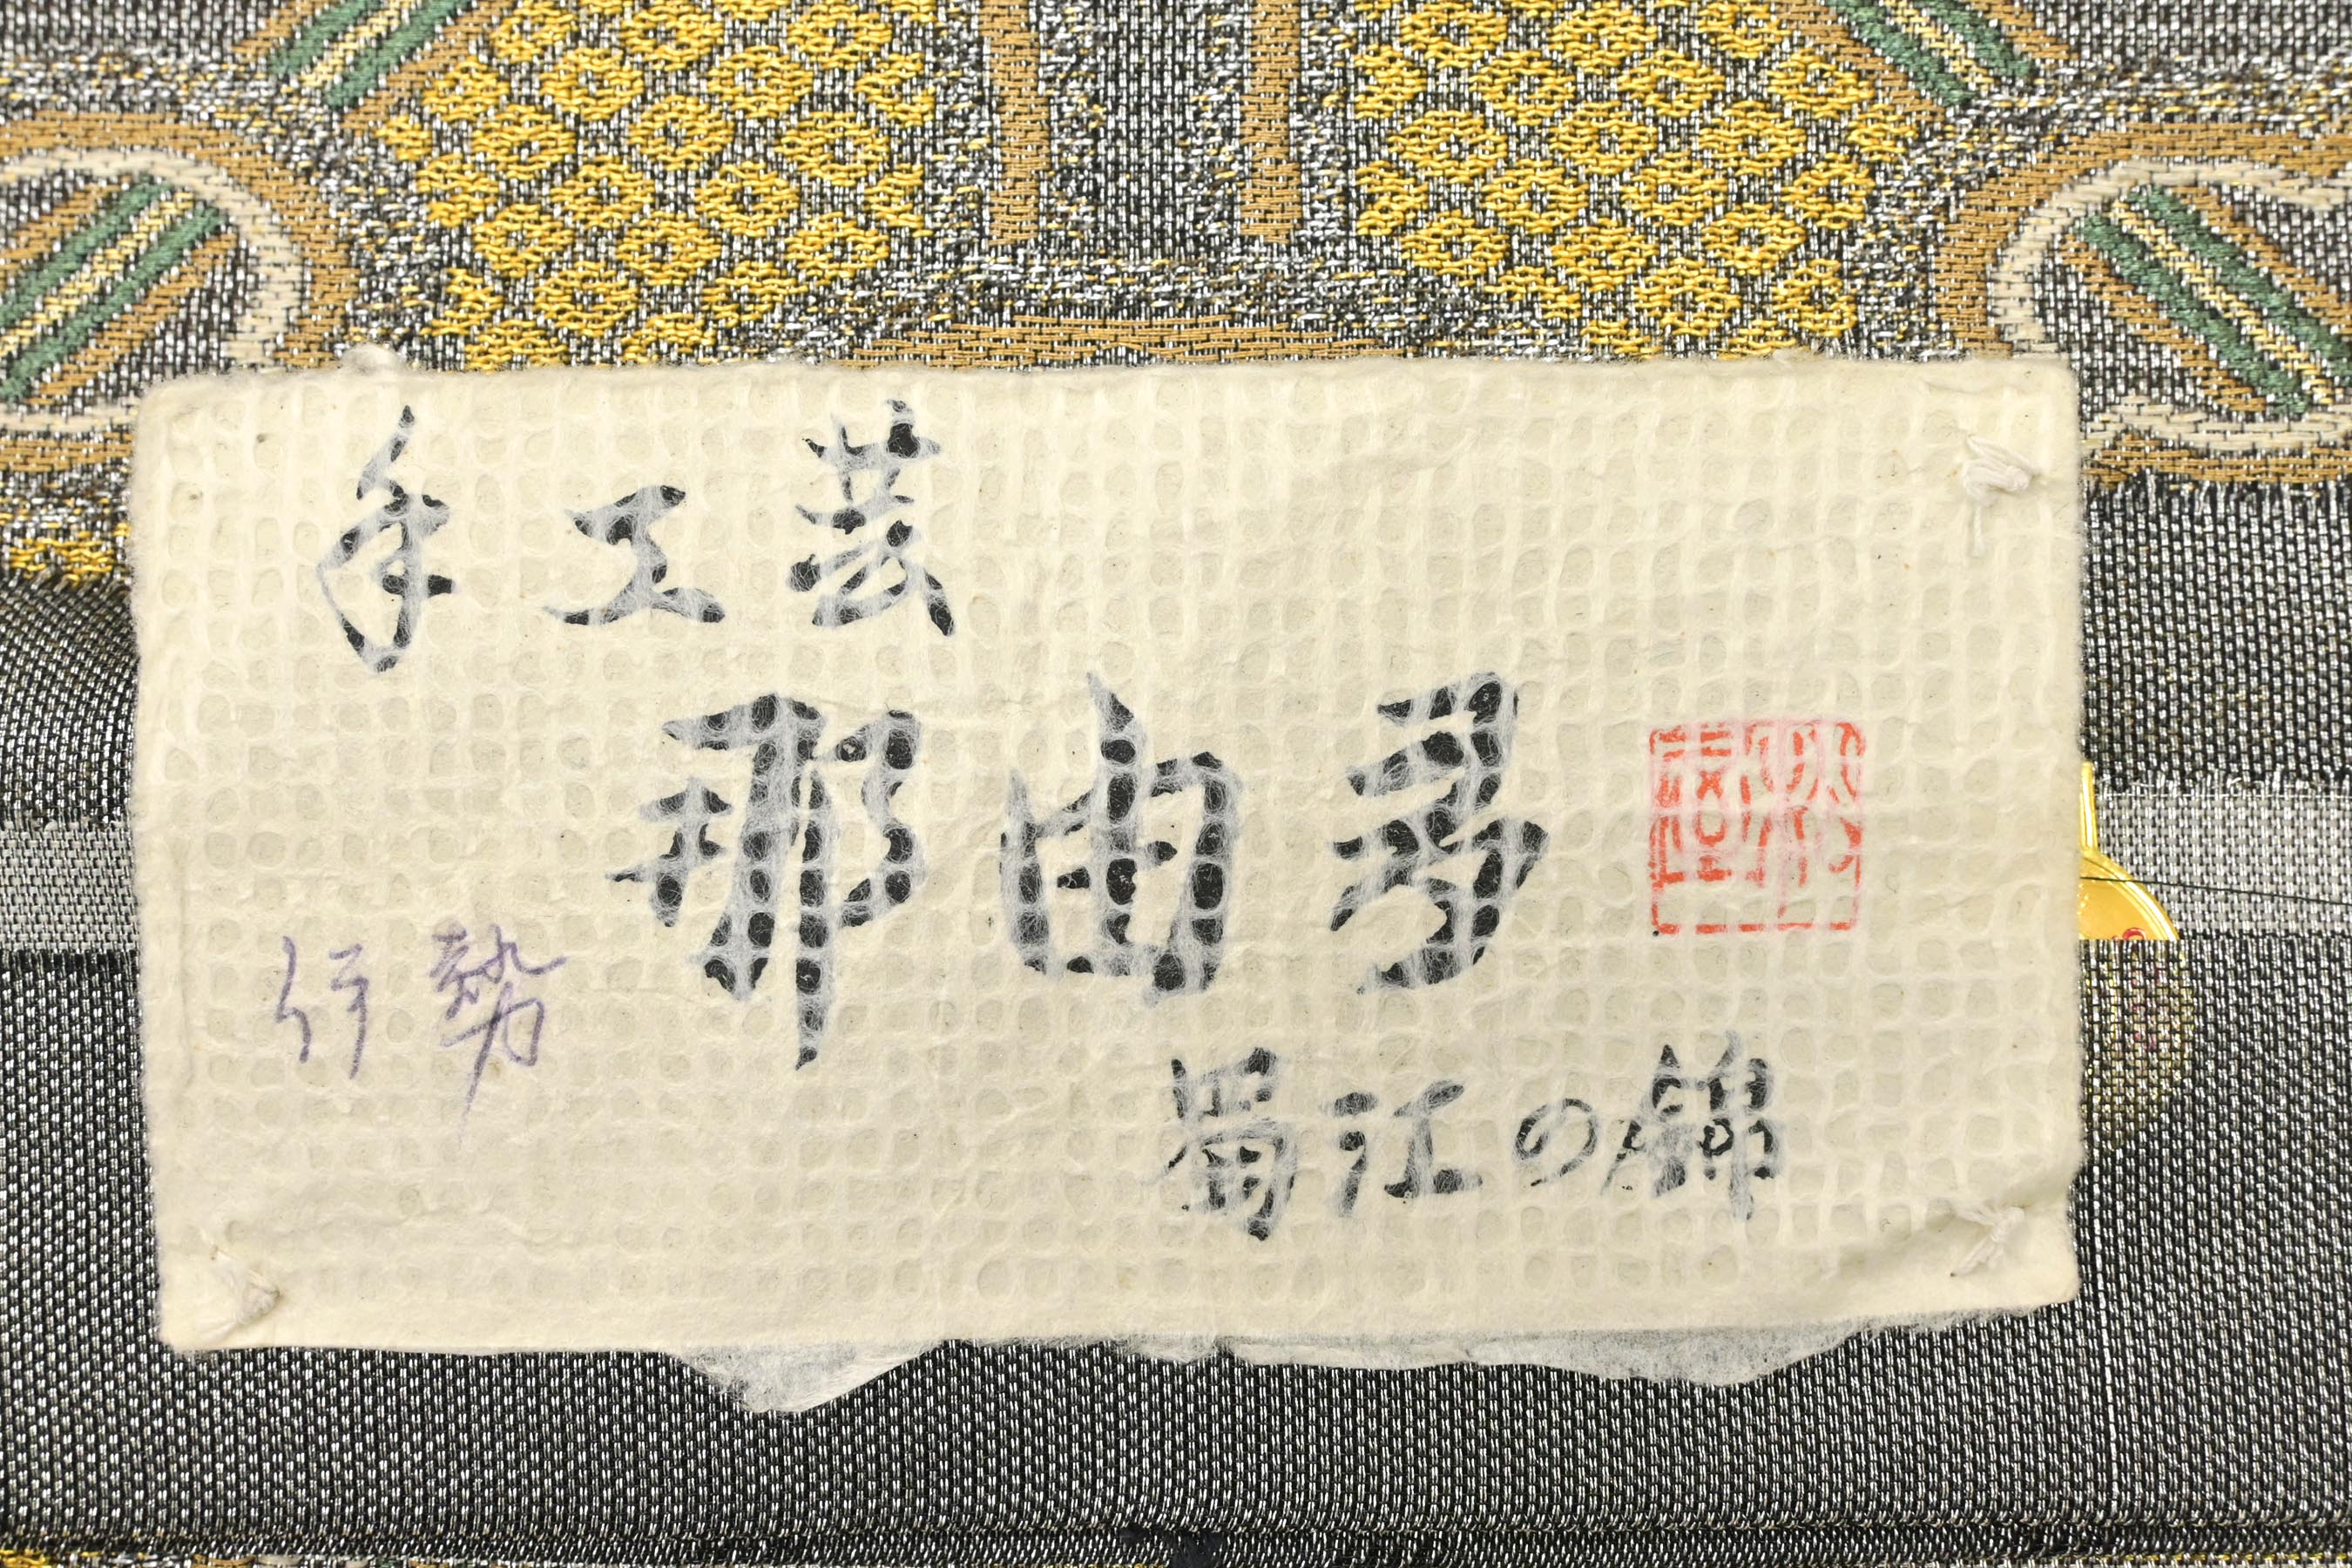 手工芸
那由多
行勢
蜀江の錦